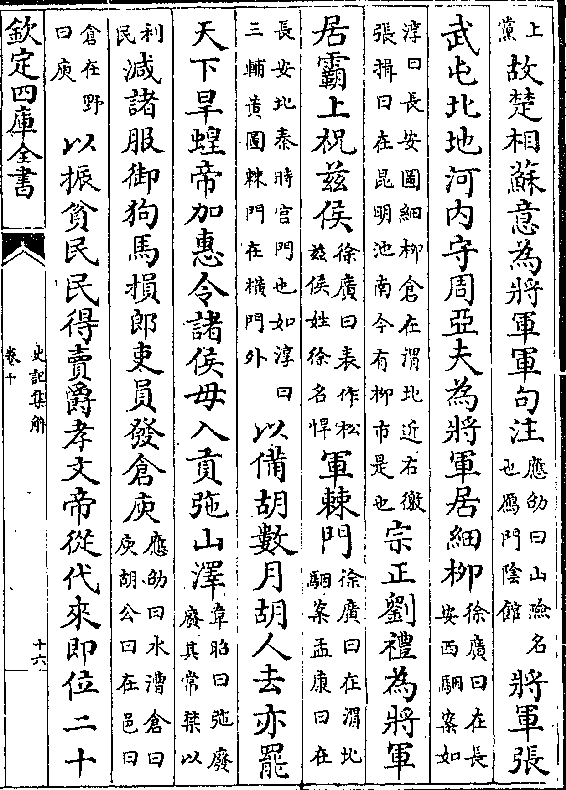 上黨故楚相蘇意為將軍軍句注應劭曰山險名也鴈門陰館將軍張
武屯北地河內守周亞夫為將軍居細柳徐廣曰在長安西駰案如
淳曰長安圖細柳倉在渭北近右徼張揖曰在昆明池南今有柳市是也宗正劉禮為將軍
居霸上祝茲侯徐廣曰表作松茲侯姓徐名悍軍棘門徐廣曰在渭北駰案孟康曰在
長安北秦時宮門也如淳曰三輔黃圖棘門在橫門外以備胡數月胡人去亦罷
天下旱蝗帝加惠令諸侯毋入貢弛山澤韋昭曰弛廢廢其常禁以
利民減諸服御狗馬損郎吏員發倉庾應劭曰水漕倉曰庾胡公曰在邑曰
倉在野曰庾以振貧民民得賣爵孝文帝從代來即位二十
欽定四庫全書
史記集解
卷十
十六